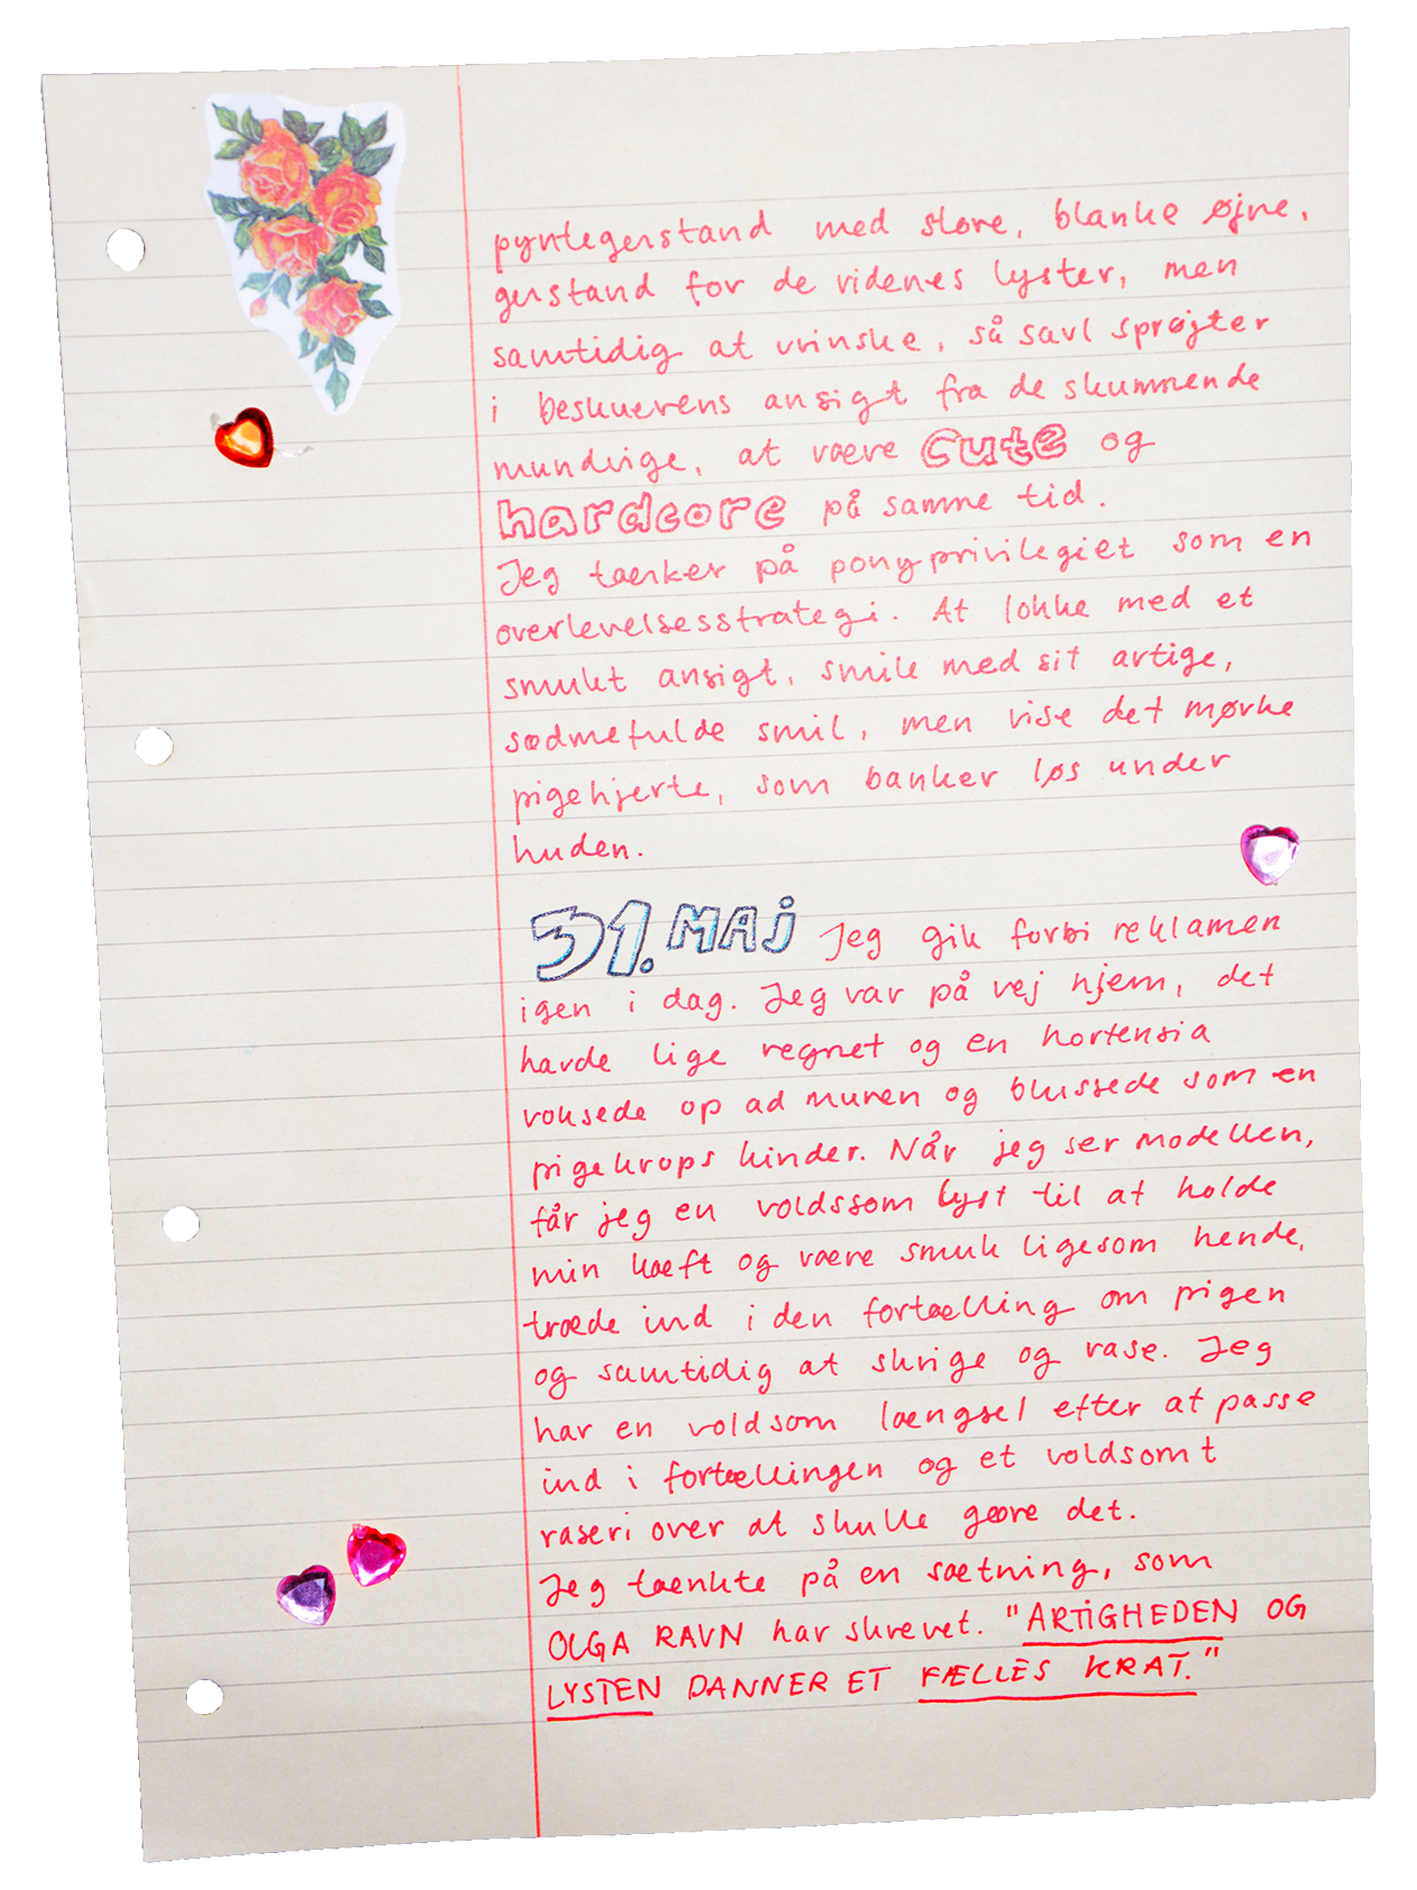 pyntegenstand med store, blanke øjne,
genstand for de ridenes lyster, men
samtidig at vrinske, så savl sprøjter
i beskuerens ansigt fra de skummende
mundvige, at være cute og
hardcore på samme tid.
Jeg tænker på ponyprivilegiet som en
overlevelsesstrategi. At lokke med et
smukt ansigt, smile med sit artige,
sødmefulde smil, men vise det mørke
pigehjerte, som banker løs under
huden.
31. MAj Jeg gik forbi reklamen
igen i dag. Jeg var på vej hjem, det
havde lige regnet og en hortensia
voksede op ad muren og blussede som en
pigekrops kinder. Når jeg ser modellen,
får jeg en voldssom lyst til at holde
min kæft og være smuk ligesom hende,
træde ind i den fortælling om pigen
og samtidig at skrige og rase. Jeg
har en voldsom længsel efter at passe
ind i fortællingen og et voldsomt
raseri over at skulle gøre det.
Jeg tænkte på en sætning, som
OLGA RAVN har skrevet. "ARTIGHEDEN OG
LYSTEN DANNER ET FÆLLES KRAT."